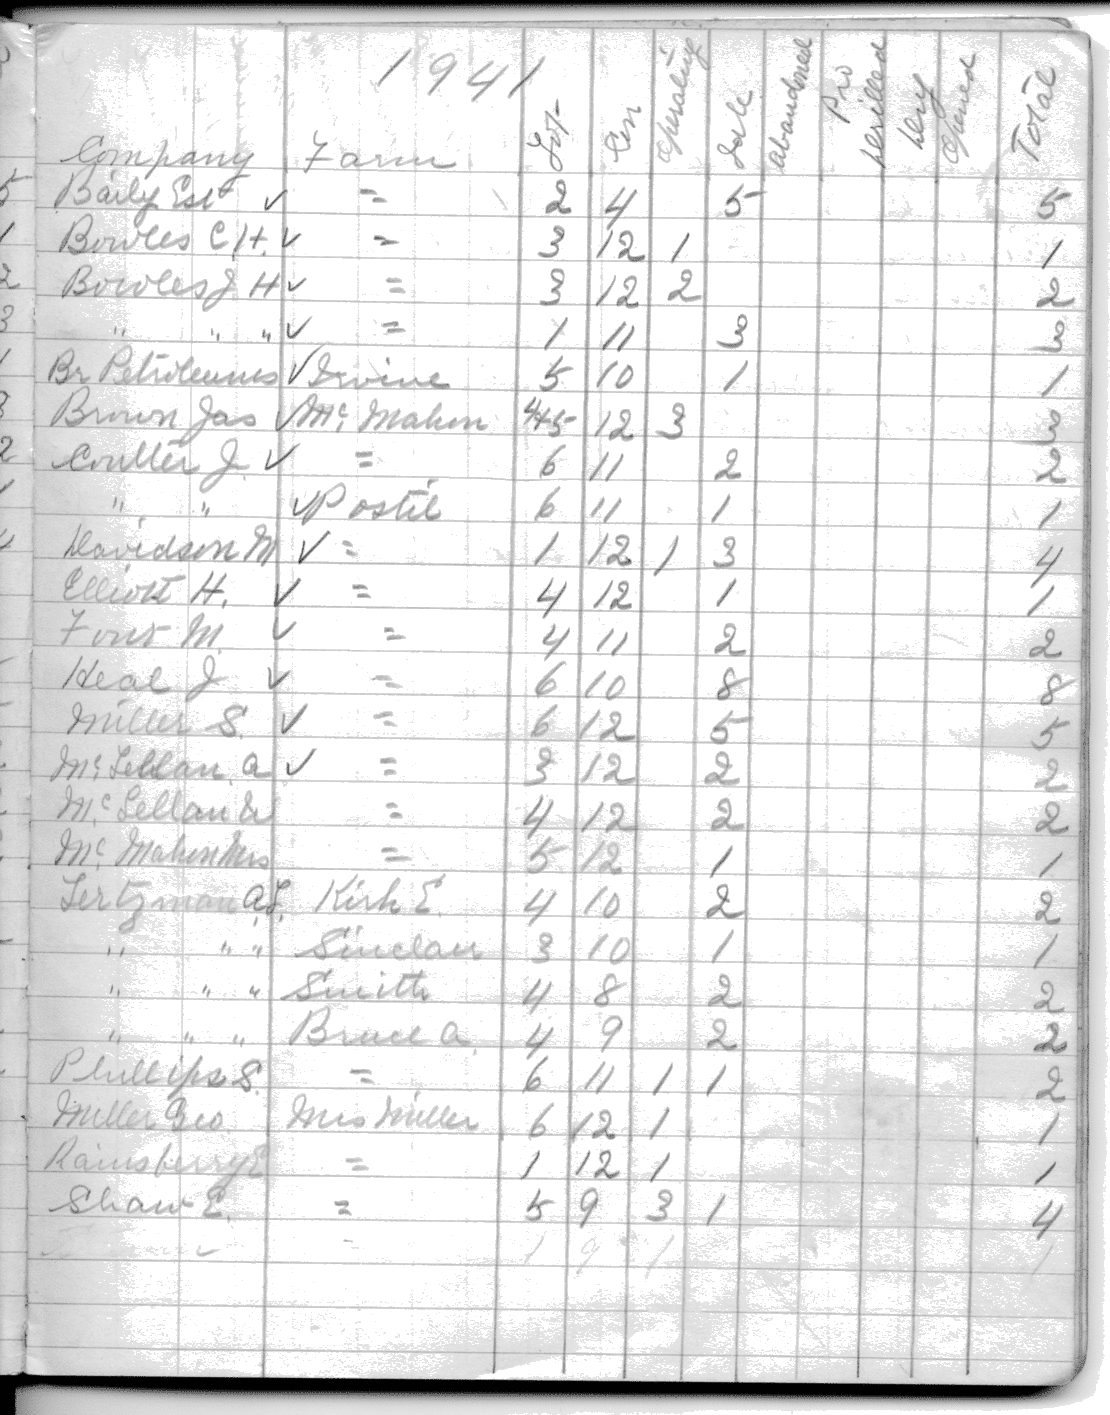 1941
Company Farm Lot Con Operating Idle Abandoned Pro Drilled Dry Opened Total
Baily Est ✓ = 2 4 5 5
Bowles C H. ✓ = 3 12 1 1
Bowles J H ✓ = 3 12 2 2
" " " ✓ = 1 11 3 3
Br Petroleums ✓ Irvine 5 10 1 1
Brown Jas ✓ Mc Mahon 4+5 12 3 3
Coulter J. ✓ = 6 11 2 2
" " ✓ Postil 6 11 1 1
Davidson M ✓ = 1 12 1 3 4
Elliott H. ✓ = 4 12 1 1
M. ✓ = 4 11 2 2
Heal J ✓ = 6 10 8 8
Miller S. ✓ = 6 12 5 5
Mc Lellan. A ✓ = 3 12 2 2
Mc Lellan = 4 12 2 2
Mc Mahon Mrs = 5 12 1 1
Lertzman A.L. Kirk E. 4 10 2 2
" " " Sinclair 3 10 1 1
" " " Smith 4 8 2 2
" " " Bruce A. 4 9 2 2
Phillips S. = 6 11 1 1 2
Miller Geo Mrs Miller 6 12 1 1
Rainsberry E = 1 12 1 1
Shaw E. = 5 9 3 1 4
1 9 1 1
5
1
2
3
1
3
2
1
4